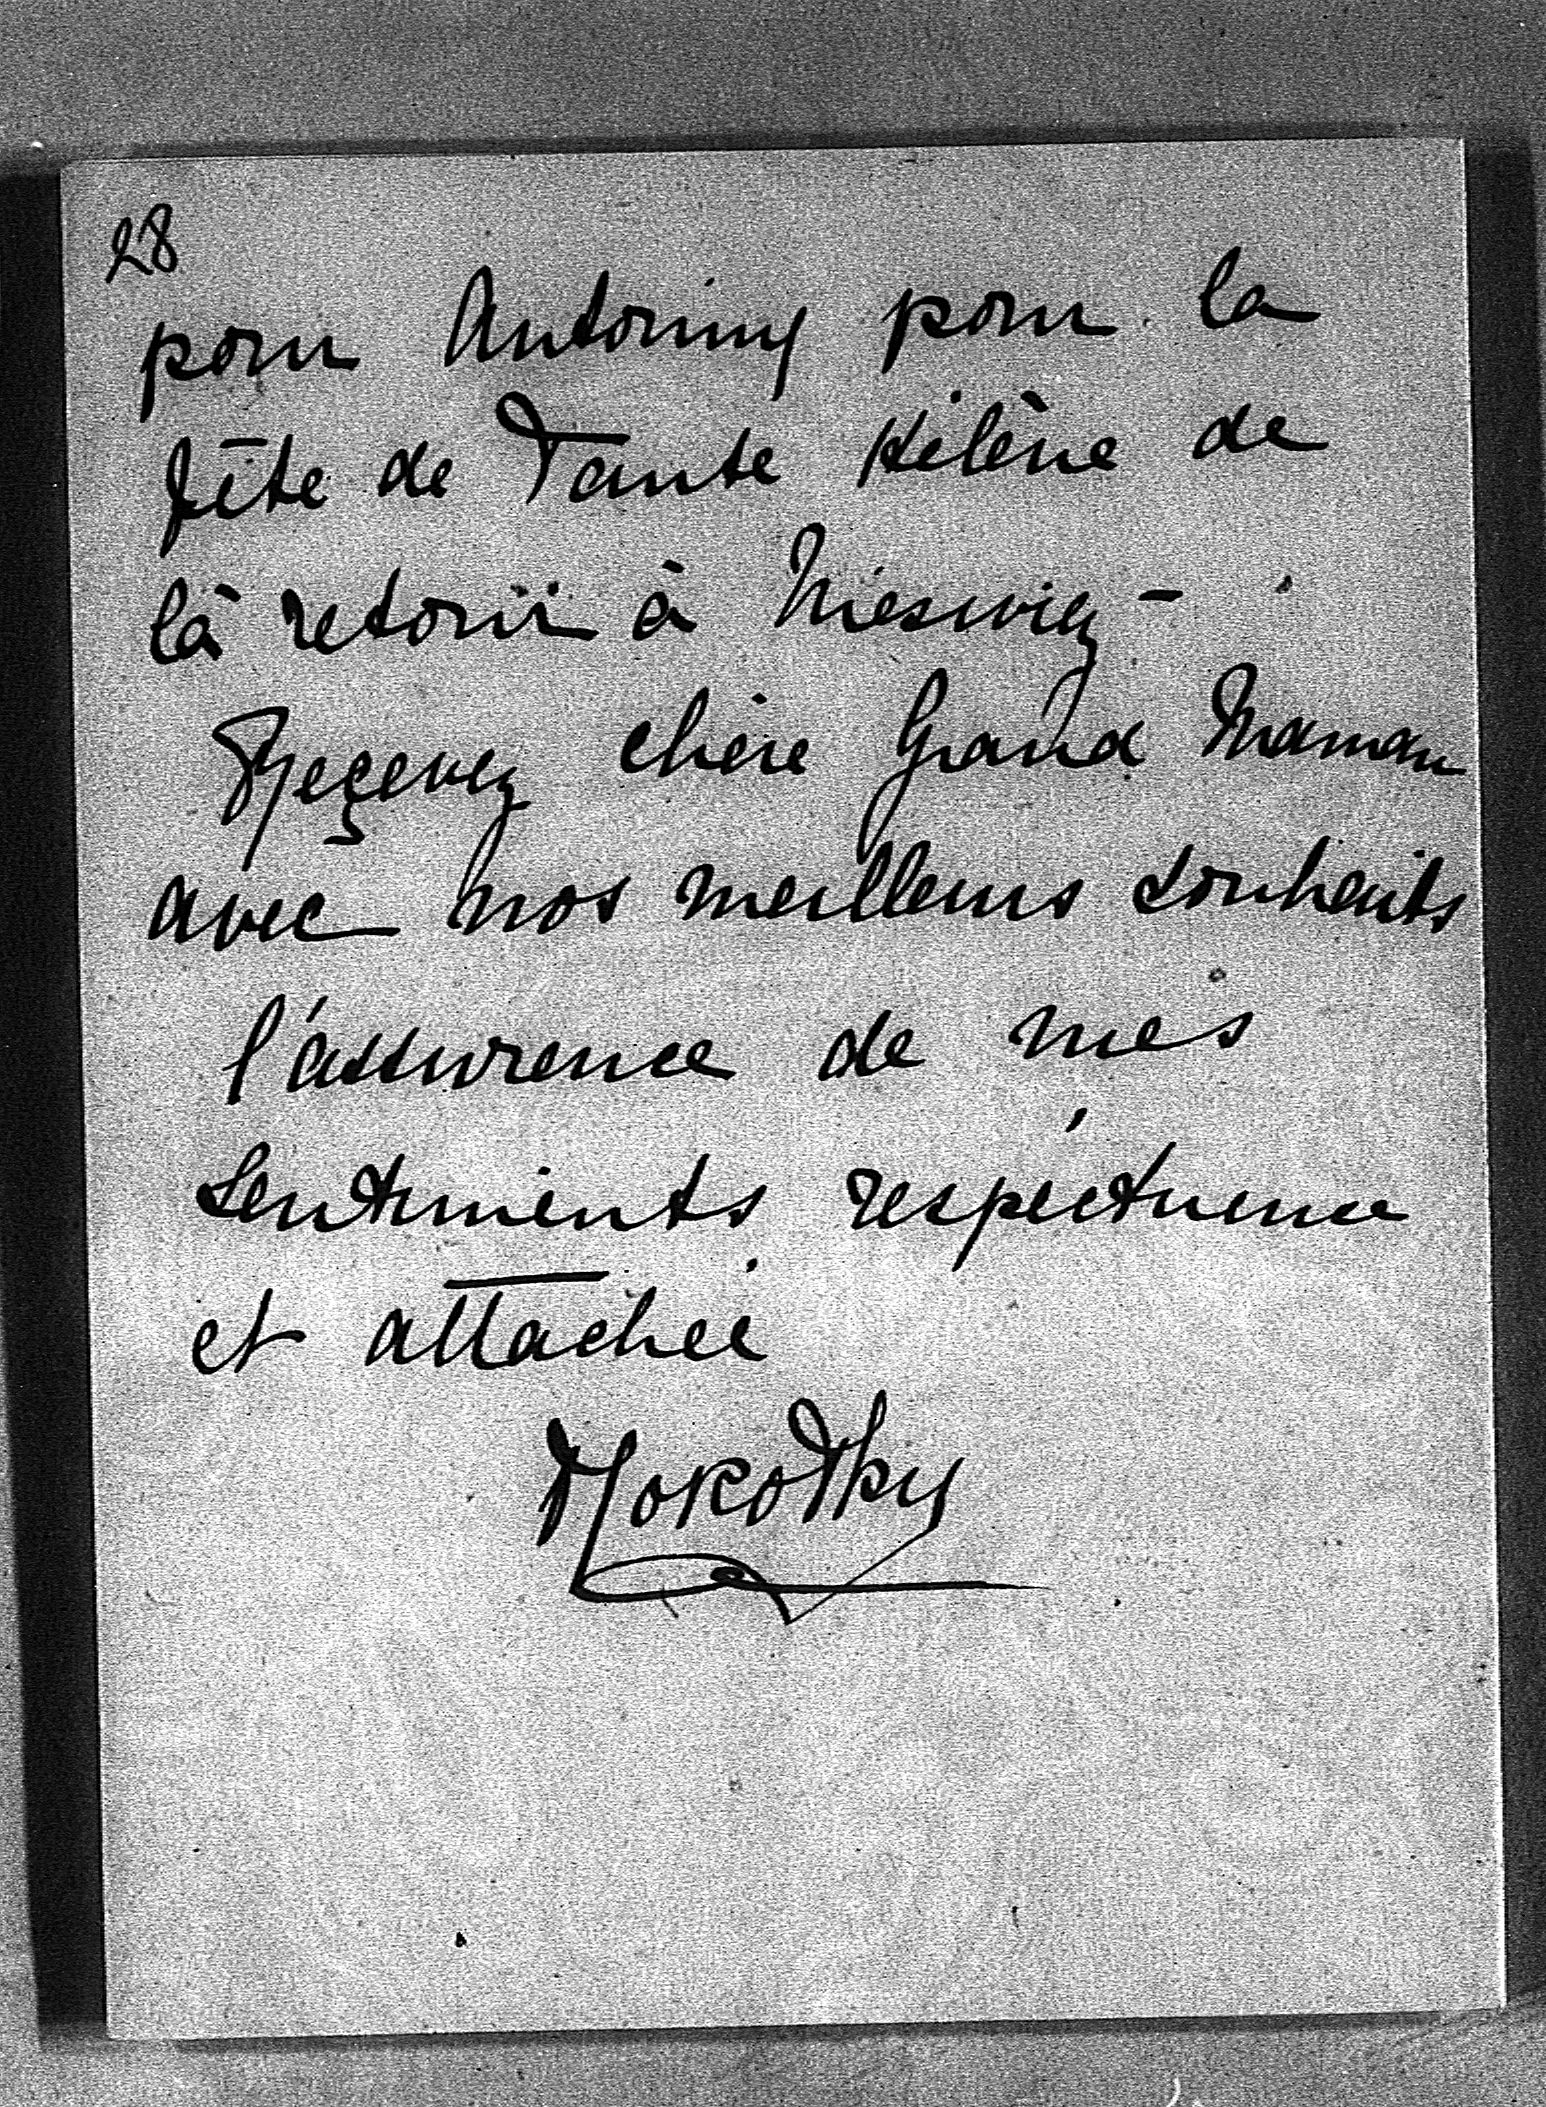 28
pour Antoniny pour la
fête de Tante Hélène de
là retour à Nieswiez -
Reçevez chère Grand Maman
avec nos meilleurs souhaits
l'assurence de mes
sentiments respectueux
et attachée